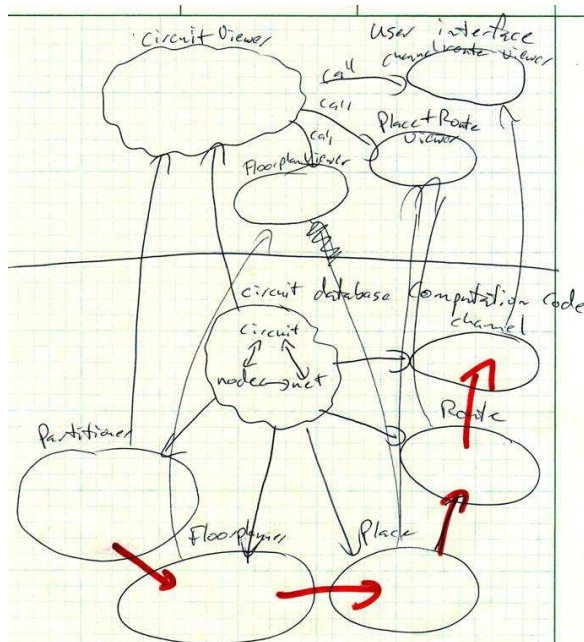 Circuit Viewer
User interface
channel route viewer
call
call
call
Place + Route
Viewer
Floorplan Viewer
circuit database
Computation code
channel
circuit
node
net
Route
Partitioner
Floorplanner
Place